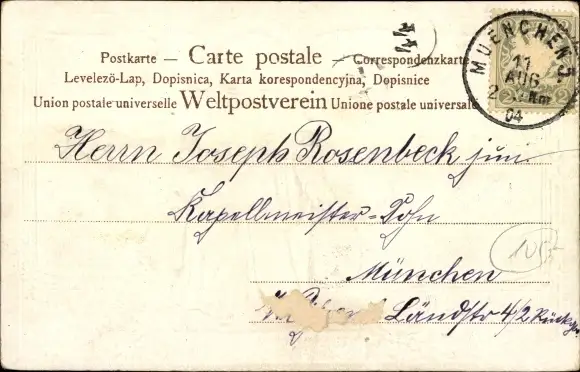 Postkarte — Carte postale — Correspondenzkarte
Levelezö-Lap, Dopisnica, Karta korespondencyjna, Dopisnice
Union postale universelle Weltpostverein Unione postale universale
44
MUENCHEN 3
11
AUG
04
Herrn Joseph Rosenbeck jun.
Kapellmeister-Sohn
München
Ländstr 4/2 Rückg.